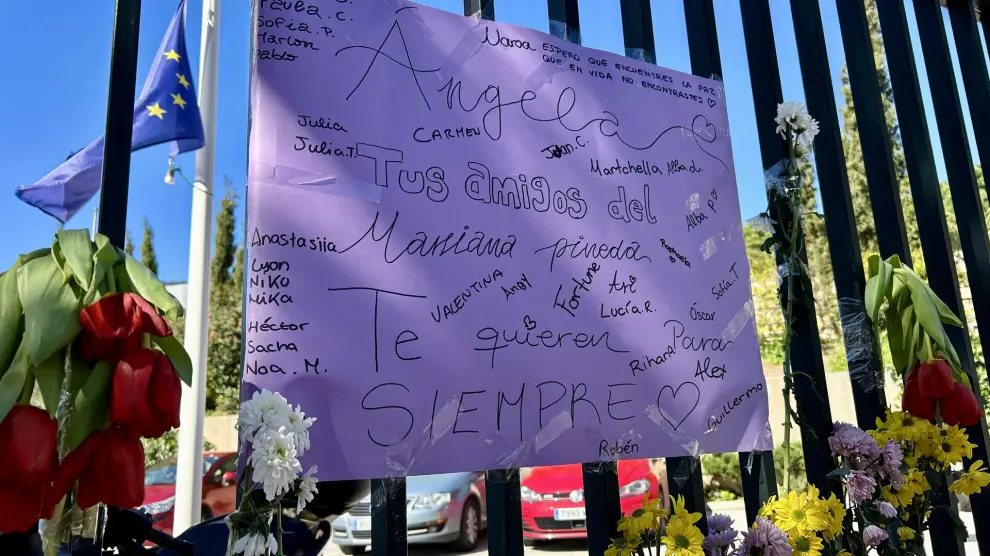 Sofía.P.
Marlon
Pablo
Naroa ESPERO QUE ENCUENTRES LA PAZ
QUE EN VIDA NO ENCONTRASTES ♡
Angela
Julia
Julia.T.
CARMEN
Juan.C.
Martchella
Alba d.
Tus amigos del
Alba P
Anastasiia
Mariana pineda
Lyon
Niko
Mika
VALENTINA
Andy
Fortune
Ari
Lucía.R.
Sofía.T
Óscar
Héctor
Sacha
Noa.M.
Te quieren Para
Rihana
Alex
SIEMPRE ♡
Guillermo
Rubén